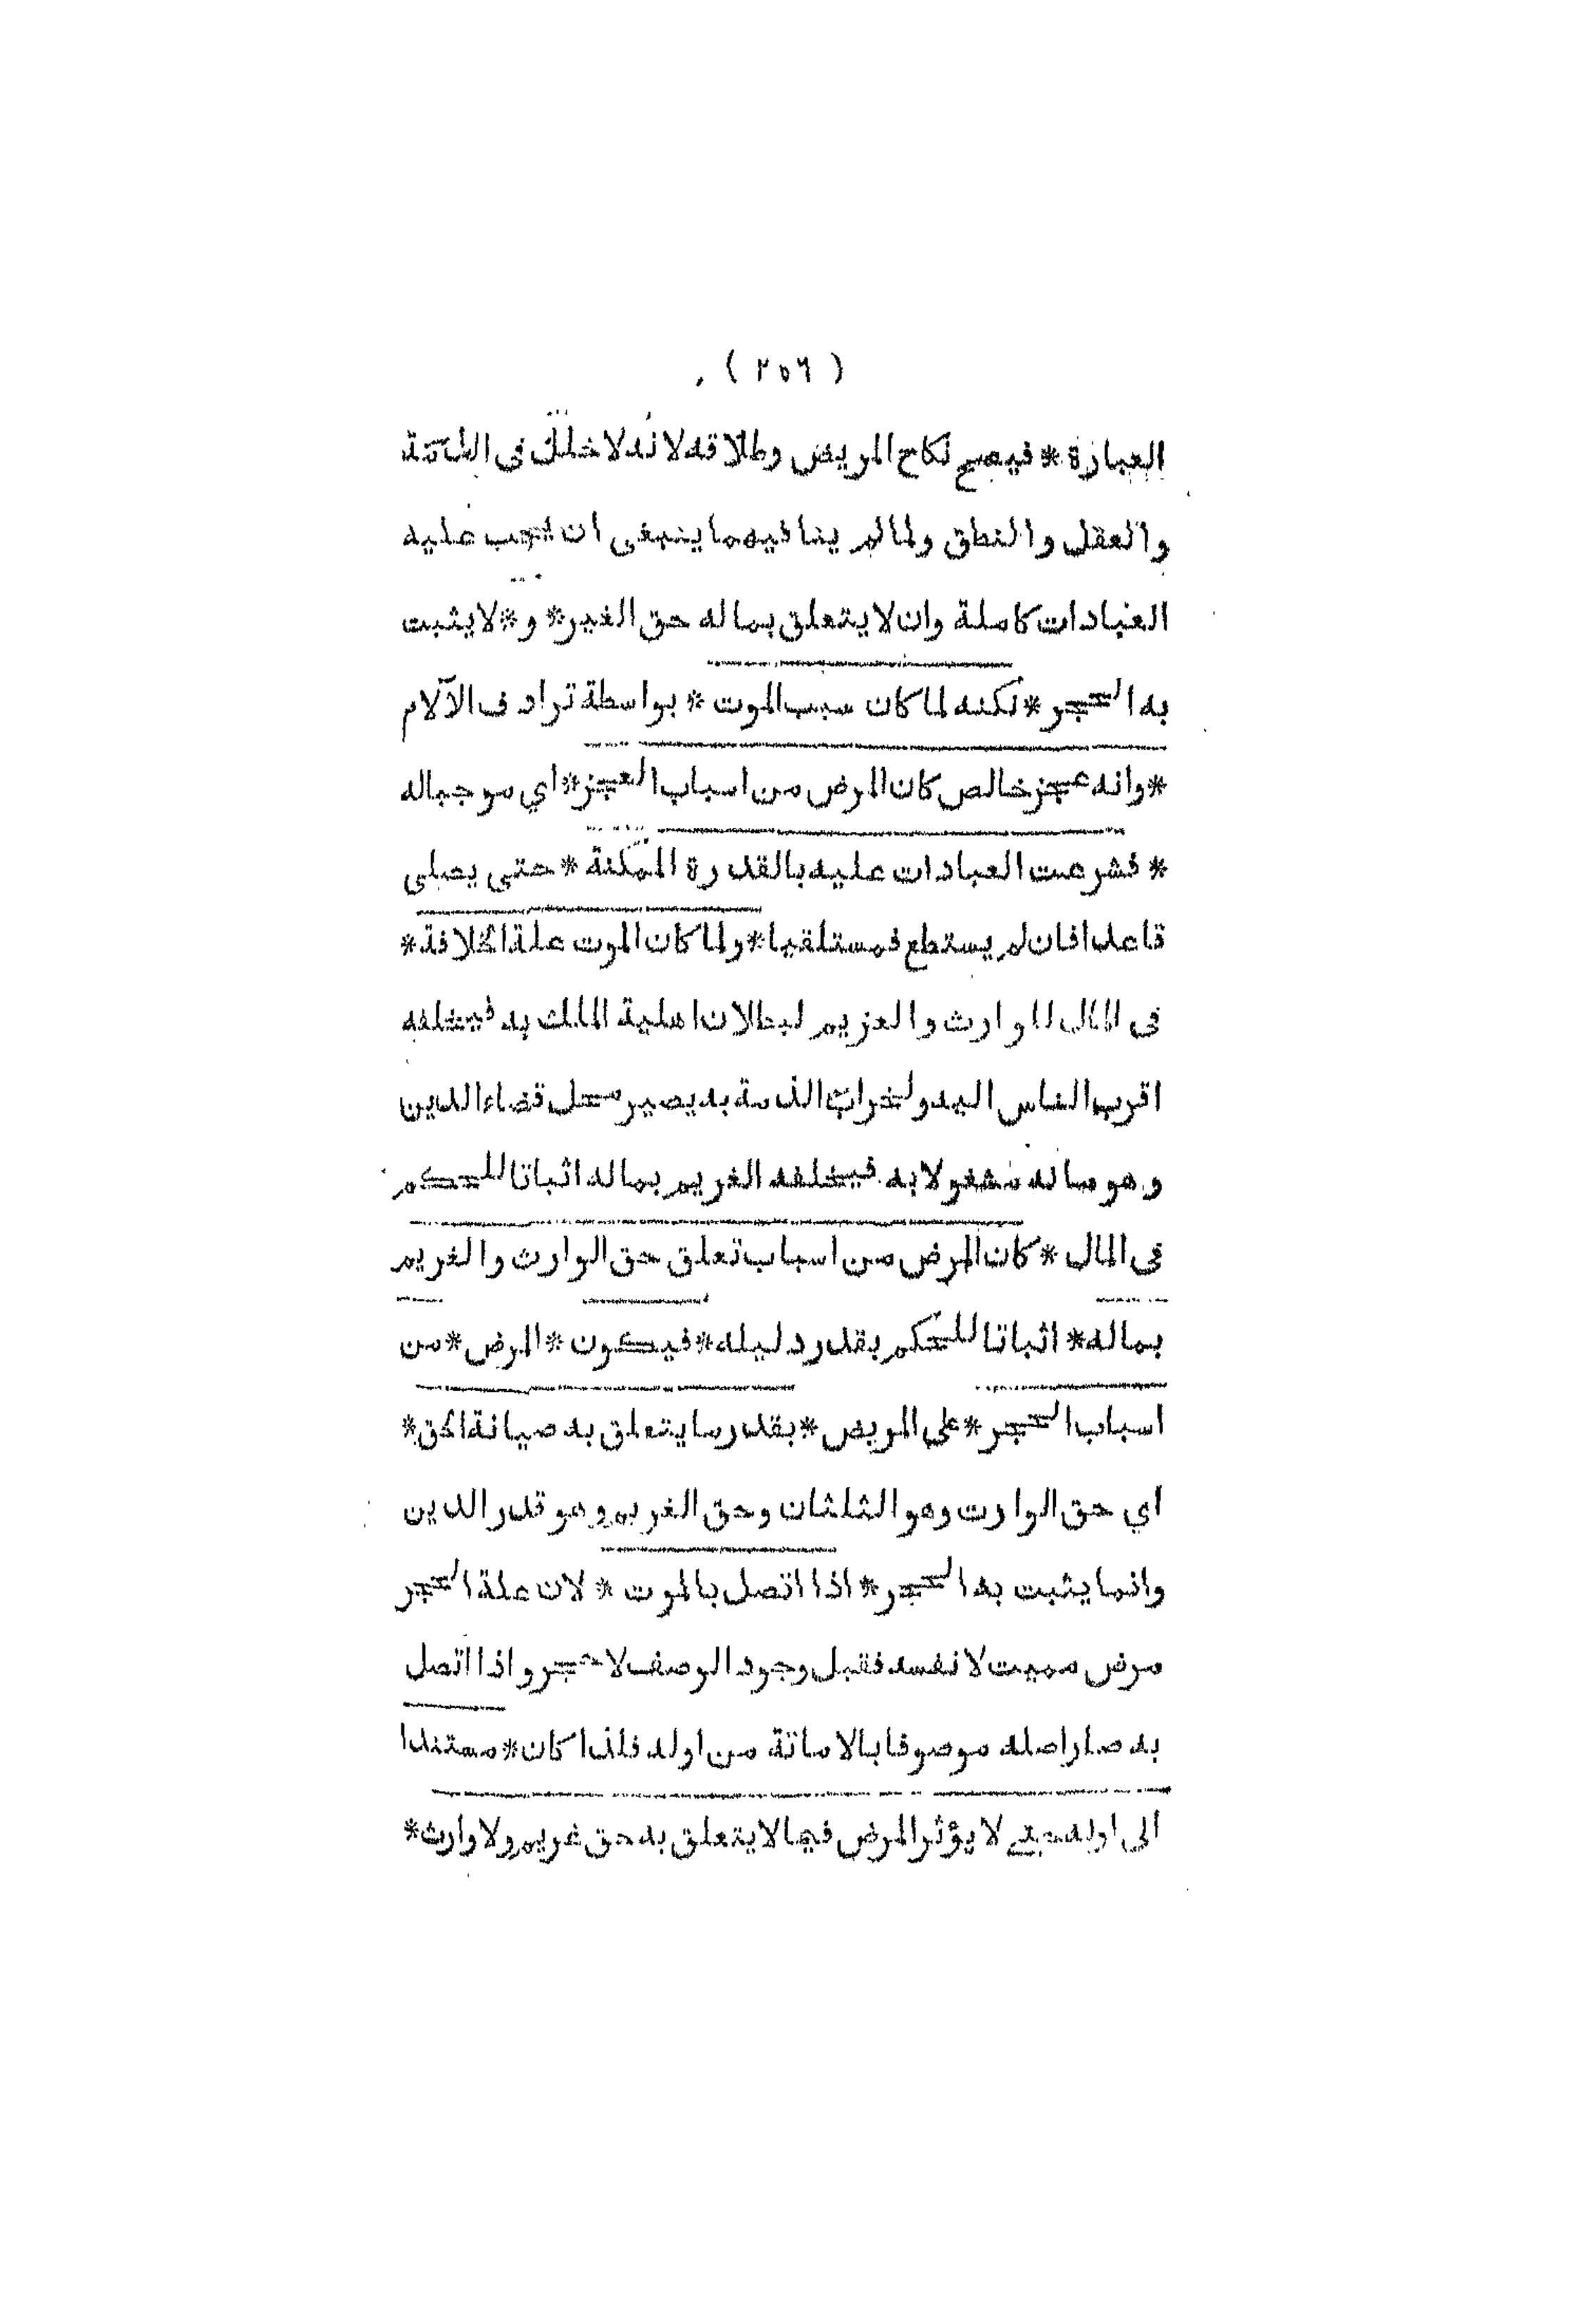 ( ٢٥٦ )
العبارة * فيصح نكاح المريض وطلاقه لانه لا خلل في
والعقل والنطق ولما لم ينا فيهما ينبغى ان تجب عليه
العبادات كاملة وان لا يتعلق بماله حق الغير * و * لا يثبت
به الحجر * لكنه لما كان سبب الموت * بواسطة ترادف الآلام
* وانه عجز خالص كان المرض من اسباب العجز * اي موجباله
* فشرعت العبادات عليه بالقدرة الممكنة * حتى يصلى
قاعدا فان لم يستطع فمستلقيا * ولما كان الموت علة الخلافة *
فى المال للوارث والغريم لبطلان اهلية الملك به فيخلفه
اقرب الناس اليه ولخراب الذمة به يصير محل قضاء الدين
وهو ماله مشغولا به فيخلفه الغريم بماله اثباتا للحكم
فى المال * كان المرض من اسباب تعلق حق الوارث والغريم
بماله * اثباتا للحكم بقدر دليله * فيكون * المرض * من
اسباب الحجر * على المريض * بقدر ما يتعلق به صيانة الحق *
اي حق الوارث وهو الثلثان وحق الغريم وهو قدر الدين
وانما يثبت به الحجر * اذا اتصل بالموت * لان علة الحجر
مرض مميت لا نفسه فقبل وجود الوصف لا حجر واذا اتصل
به صار اصله موصوفا بالاماتة من اوله فلذا كان * مستندا
الى اوله حتى لا يؤثر المرض فيما لا يتعلق به حق غريم ولا وارث *